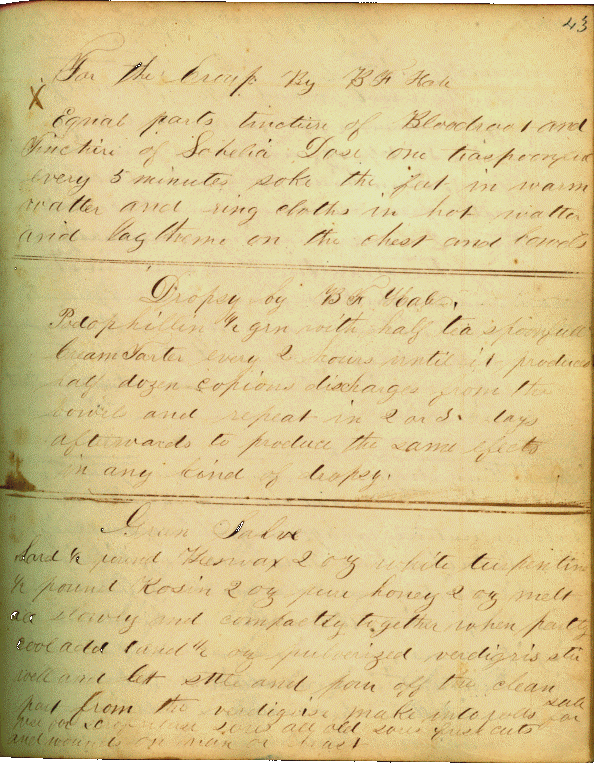 43
For the Croup By B F Hale
X
Equal parts tincture of Bloodroot and
Tincture of Lobelia Dose one teaspoonful
every 5 minutes soke the feet in warm
watter and ring cloths in hot watter
and lay theme on the chest and bowels
Dropsy by B F Hale
Podophillin ½ grn with half tea spoonfull
Cream Tarter every 2 hours until it produces
half dozen copious discharges from the
bowel and repeat in 2 or 3 days
afterwards to produce the same efects
in any kind of dropsy.
Green Salve
Lard ½ pound Beeswax 2 oz white turpintine
½ pound Rosin 2 oz pure honey 2 oz melt
all slowly and compactly together when partly
cool add 1 and ½ oz pulverized verdigris stir
well and let sttle and pour off the clean
part from the verdigris make into rolls
salve for
old sores fresh cuts
and wounds on man or beast